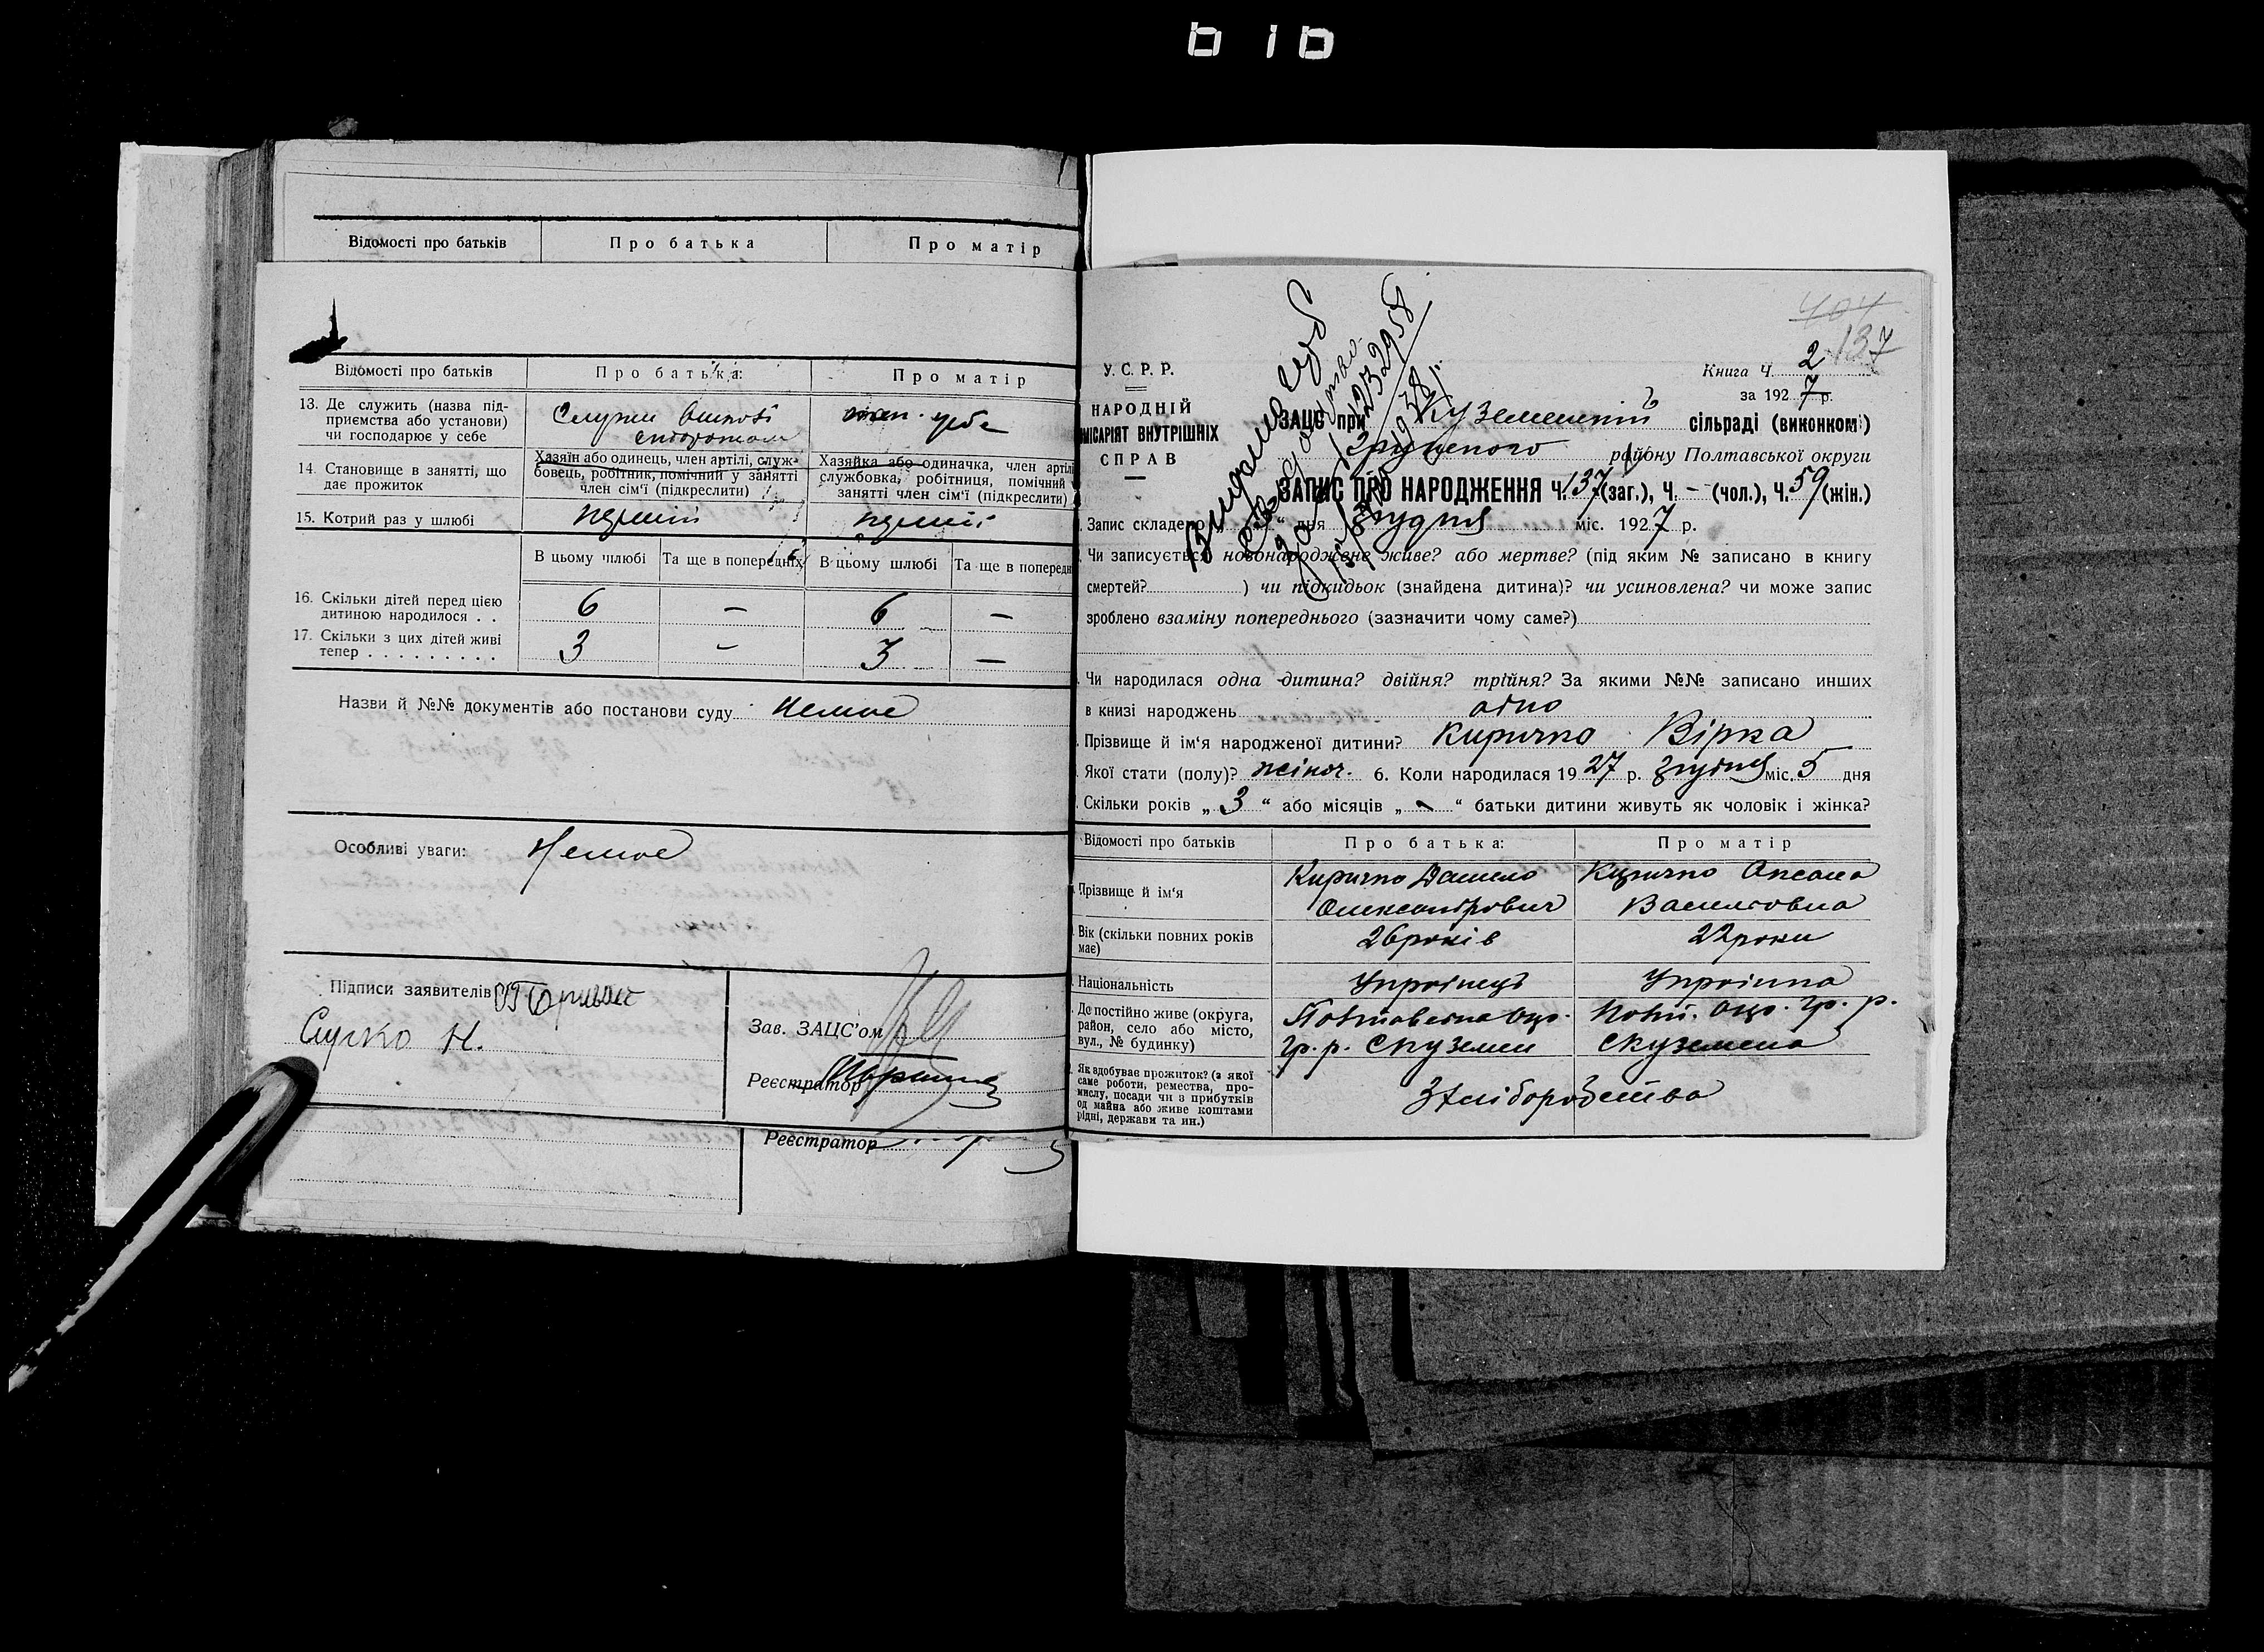 Відомості про батьків Про батька Про матір
Відомості про батьків Про батька: Про матір
13. Де служить (назва під-
приємства або установи)
чи господарює у себе
14. Становище в занятті, що
дає прожиток
Хазяїн або одинець, член артілі, служ-
бовець, робітник, помічний у занятті
член сім'ї (підкреслити)
Хазяйка або одиначка, член артілі
службовка, робітниця, помічний
занятті член сім'ї (підкреслити)
15. Котрий раз у шлюбі перший перший
В цьому шлюбі Та ще в попередніх В цьому шлюбі Та ще в попередн
16. Скільки дітей перед цією
дитиною народилося . . 6 — 6 —
17. Скільки з цих дітей живі
тепер . . . . . . . . . 3 — 3 —
Назви й №№ документів або постанови суду Немає
Особливі уваги: Немає
Підписи заявителів
Сушко Н.
Зав. ЗАЦС'ом
Реєстратор
Реєстратор
404
137
У. С. Р. Р.
НАРОДНІЙ
МІСАРІЯТ ВНУТРІШНІХ
СПРАВ
Книга Ч. 2
за 1927 р.
ЗАЦС при Куземенській сільраді (виконкомі)
району Полтавської округи
ЗАПИС ПРО НАРОДЖЕННЯ Ч. 137 (заг.), Ч. - (чол.), Ч. 59 (жін.)
Запис складено дня грудня міс. 1927 р.
Чи записується новонароджене живе? або мертве? (під яким № записано в книгу
смертей? ) чи підкидьок (знайдена дитина)? чи усиновлена? чи може запис
зроблено взаміну попереднього (зазначити чому саме?)
Чи народилася одна дитина? двійня? трійня? За якими №№ записано инших
в книзі народжень одно
Прізвище й ім'я народженої дитини? Киричко Вірка
Якої стати (полу)? жіноч. 6. Коли народилася 1927 р. грудня міс. 5 дня
Скільки років „ 3 “ або місяців „ - “ батьки дитини живуть як чоловік і жінка?
Відомості про батьків Про батька: Про матір
Прізвище й ім'я
Киричко Данило
Олександрович
Киричко Оксана
Василовна
Вік (скільки повних років
має) 26 років 22 роки
Національність Українець Українка
Де постійно живе (округа,
район, село або місто,
вул., № будинку)
Полтавська окр.
гр. р. С Куземен
Полт. окр. гр. р.
С Куземена
Як здобуває прожиток? (з якої
саме роботи, ремества, про-
мислу, посади чи з прибутків
од майна або живе коштами
рідні, держави та ин.)
З хліборобства